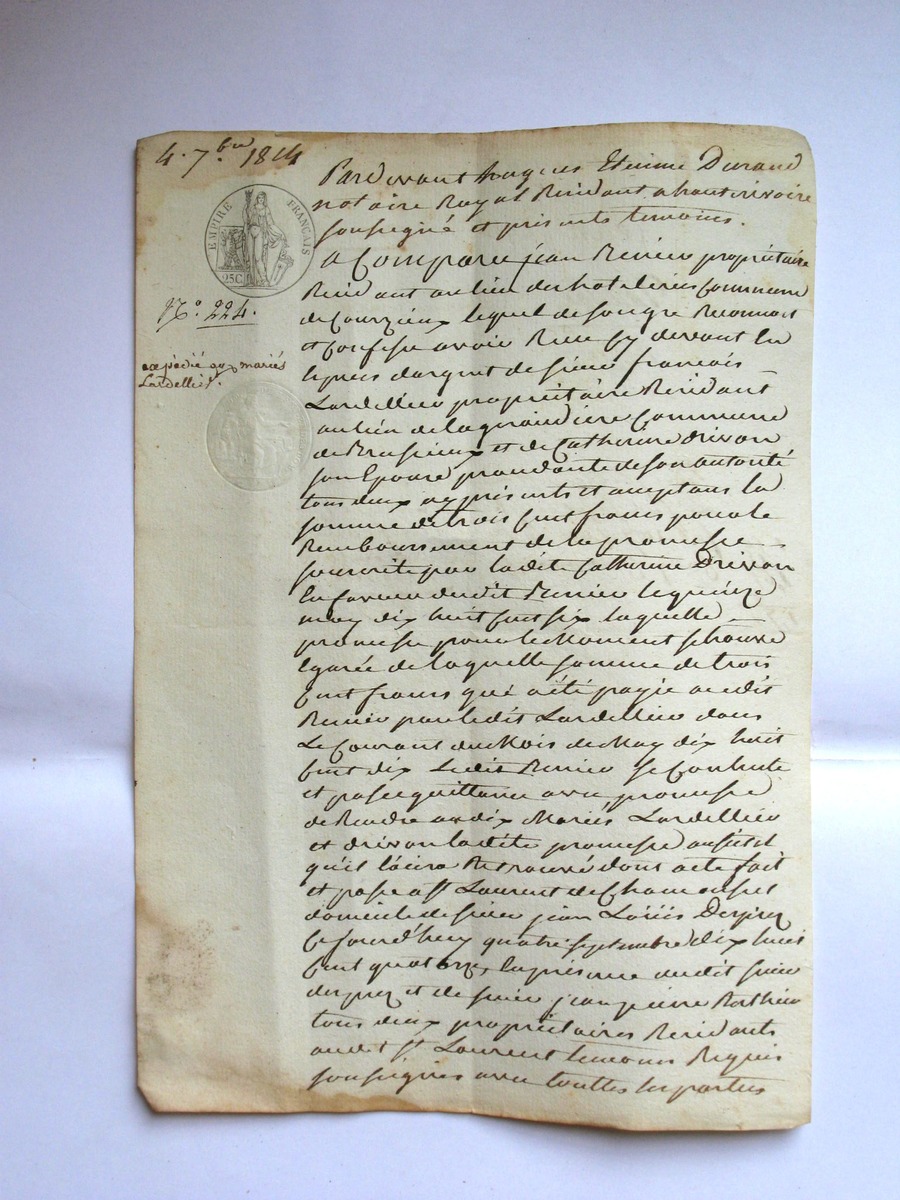 4. 7bre 1814
EMPIRE FRANÇAIS
25 C.
N.o 224.
expédié aux mariés
Lardellier.
Pardevant Jaques Etienne Durand
notaire Royal Residant a hauterivoire
soussigné et présents temoins.
a Comparu jean Renier propriétaire
Residant au lieu des hoteleries Commune
de Courzieux lequel de son gré Reconnoit
et Confesse avoir Reçu cy devant En
Especes d'argent de sieur françois
Lardellier propriétaire Residant
au lieu de la giraudiere Commune
de Brussieux et de Catherine drivon
son Epouse procedante de son autorité
tous deux icy présents et acceptans la
somme de trois Cent francs pour le
Remboursement de la promesse
souscrite par ladite Catherine Drivon
En faveur dudit Renier le quinze
may dix huit Cent six laquelle
promesse pour le Moment se trouve
Egarée de laquelle somme de trois
Cent francs qui a été payée audit
Renier par ledit Lardellier dans
Le Courant du Mois de May dix huit
Cent dix Ledit Renier se Contente
et passe quittance avec promesse
de Rendre audix Mariés Lardellier
et drivon ladite promesse aussitot
qu'il l'aura Retrouvé dont acte fait
et passé a St. Laurent de Chamousset
domicile de sieur jean Loüis Desprez
Cejourd'huy quatre septembre dix huit
Cent quatorze, En présence dudit sieur
desprez et de sieur jean pierre
tous deux propriétaires Residants
audit St Laurent temoins Requis
soussignés avec touttes les parties